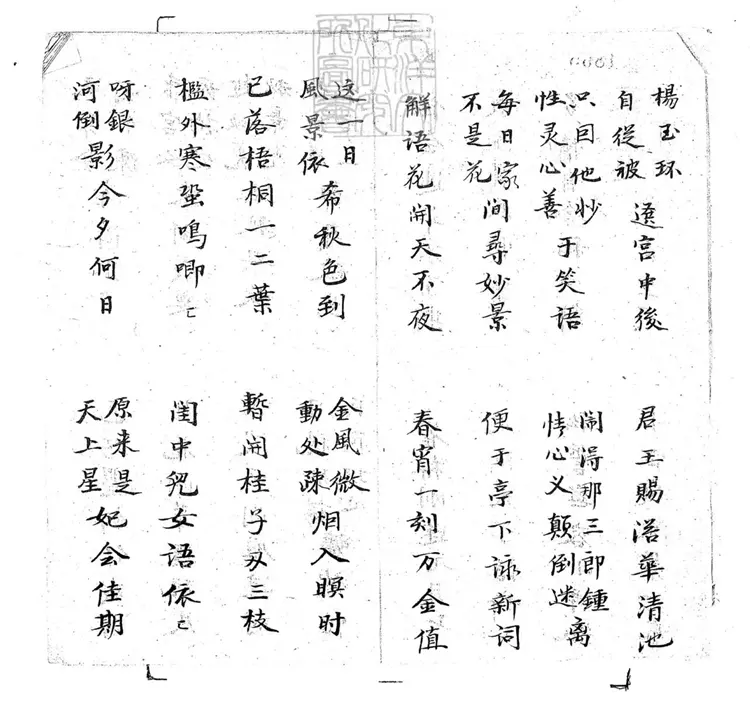 楊玉环
自從被選宫中後
君王賜浴華清池
只囙他妙
性灵心善于笑语
闹淂那三郎鍾
情心义顛倒迷离
每日家
不是花间尋妙景
便于亭下詠新词
觧语花開天不夜
春宵一刻万金值
这一日
風景依希秋色到
金風微
動处疎烟入暝时
已落梧桐一二葉
暫開桂子双三枝
檻外寒蛩鳴唧匕
闺中兒女语依匕
呀銀
河倒影今夕何日
原来是
天上星妃会佳期